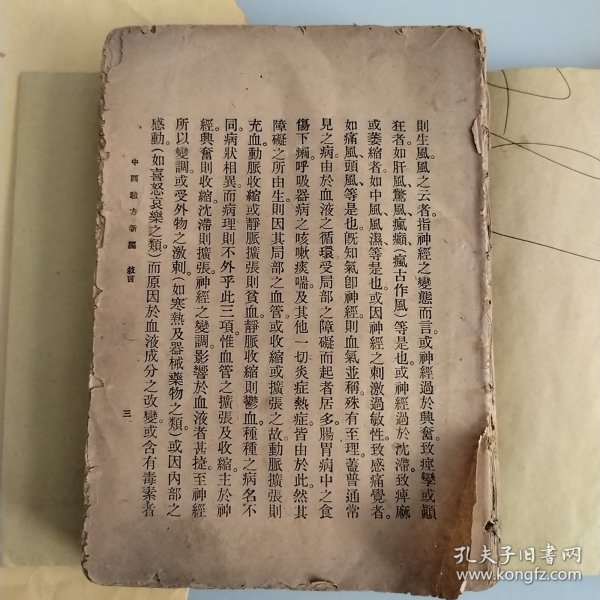 則生風風之云者指神經之變態而言或神經過於興奮致痙攣或顚
狂者如肝風驚風瘋癲（瘋古作風）等是也或神經過於沈滯致痺麻
或萎縮者如中風風濕等是也或因神經之刺激過敏性致感痛覺者
如痛風頭風等是也旣知氣卽神經則血氣並稱殊有至理蓋普通常
見之病由於血液之循環受局部之障礙而起者居多腸胃病中之食
傷下痢呼吸器病之咳嗽痰喘及其他一切炎症熱症皆由於此然其
障礙之所由生則因其局部之血管或收縮或擴張之故動脈擴張則
充血動脈收縮或靜脈擴張則貧血靜脈收縮則鬱血種種之病名不
同病狀相異而病理則不外乎此三項惟血管之擴張及收縮主於神
經興奮則收縮沈滯則擴張神經之變調影響於血液者甚捷至神經
所以變調或受外物之激刺（如寒熱及器械藥物之類）或因內部之
感動（如喜怒哀樂之類）而原因於血液成分之改變或含有毒素者
中西驗方新編 敍言 三
孔夫子旧书网
www.kongfz.com